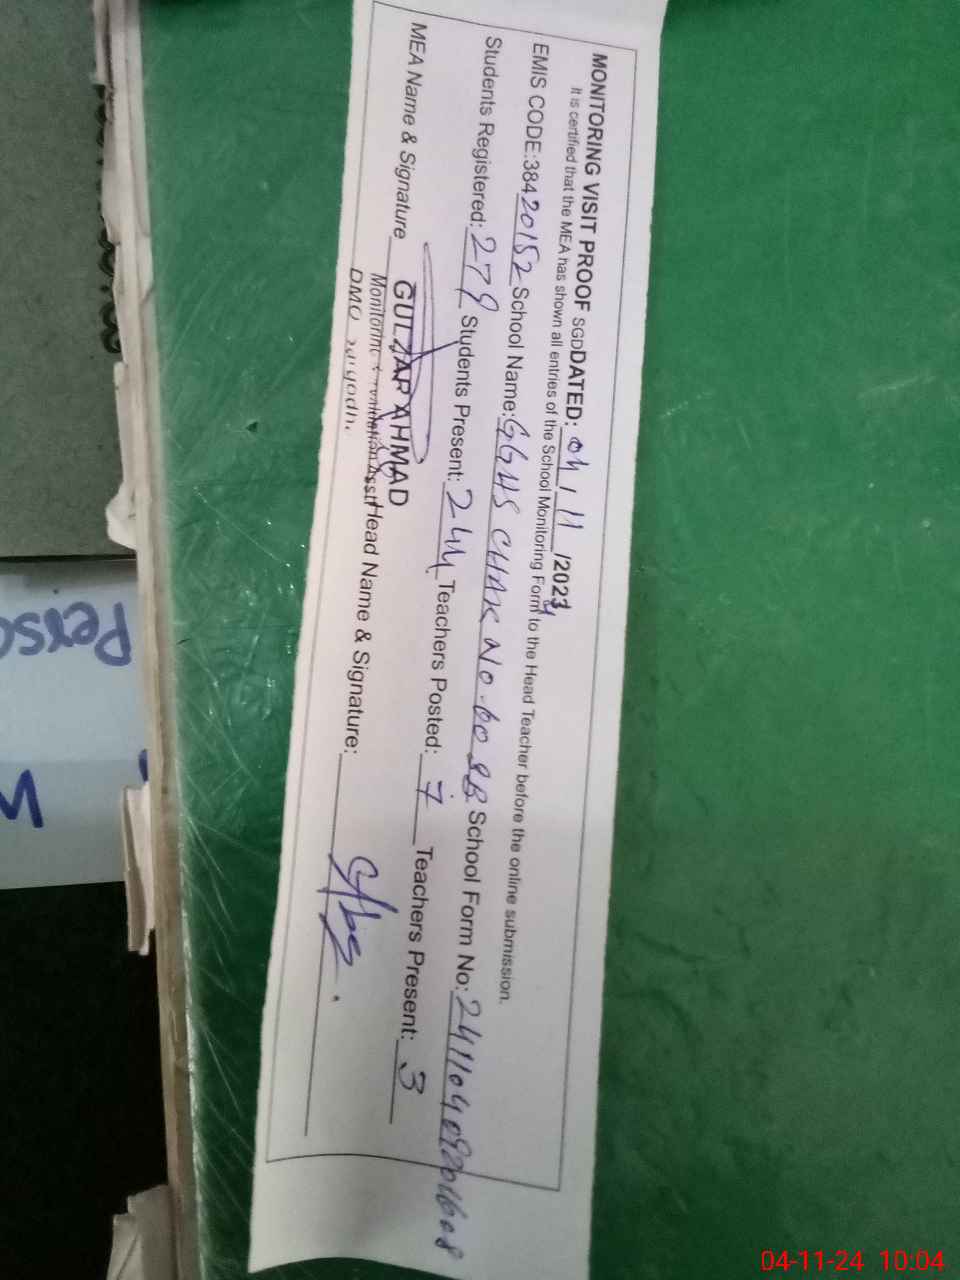 MONITORING VISIT PROOF SGD DATED: 04 / 11 /2024
It is certified that the MEA has shown all entries of the School Monitoring Form to the Head Teacher before the online submission.
EMIS CODE:38420152 School Name: GGHS CHAK NO. 60 SB School Form No: 24110409201608
Students Registered: 279 Students Present: 244 Teachers Posted: 7 Teachers Present: 3
MEA Name & Signature GULZAR AHMAD Head Name & Signature:
Monitoring & Asstt
DMO
Perso
04-11-24 10:04